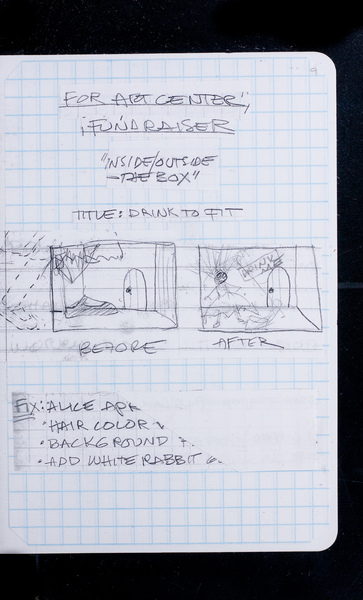 FOR ART CENTER
FUNDRAISER
"INSIDE/OUTSIDE
THE BOX"
TITLE: DRINK TO FIT
DRINK
BEFORE
AFTER
FIX: ALICE
• HAIR COLOR
• BACKGROUND
• ADD WHITE RABBIT